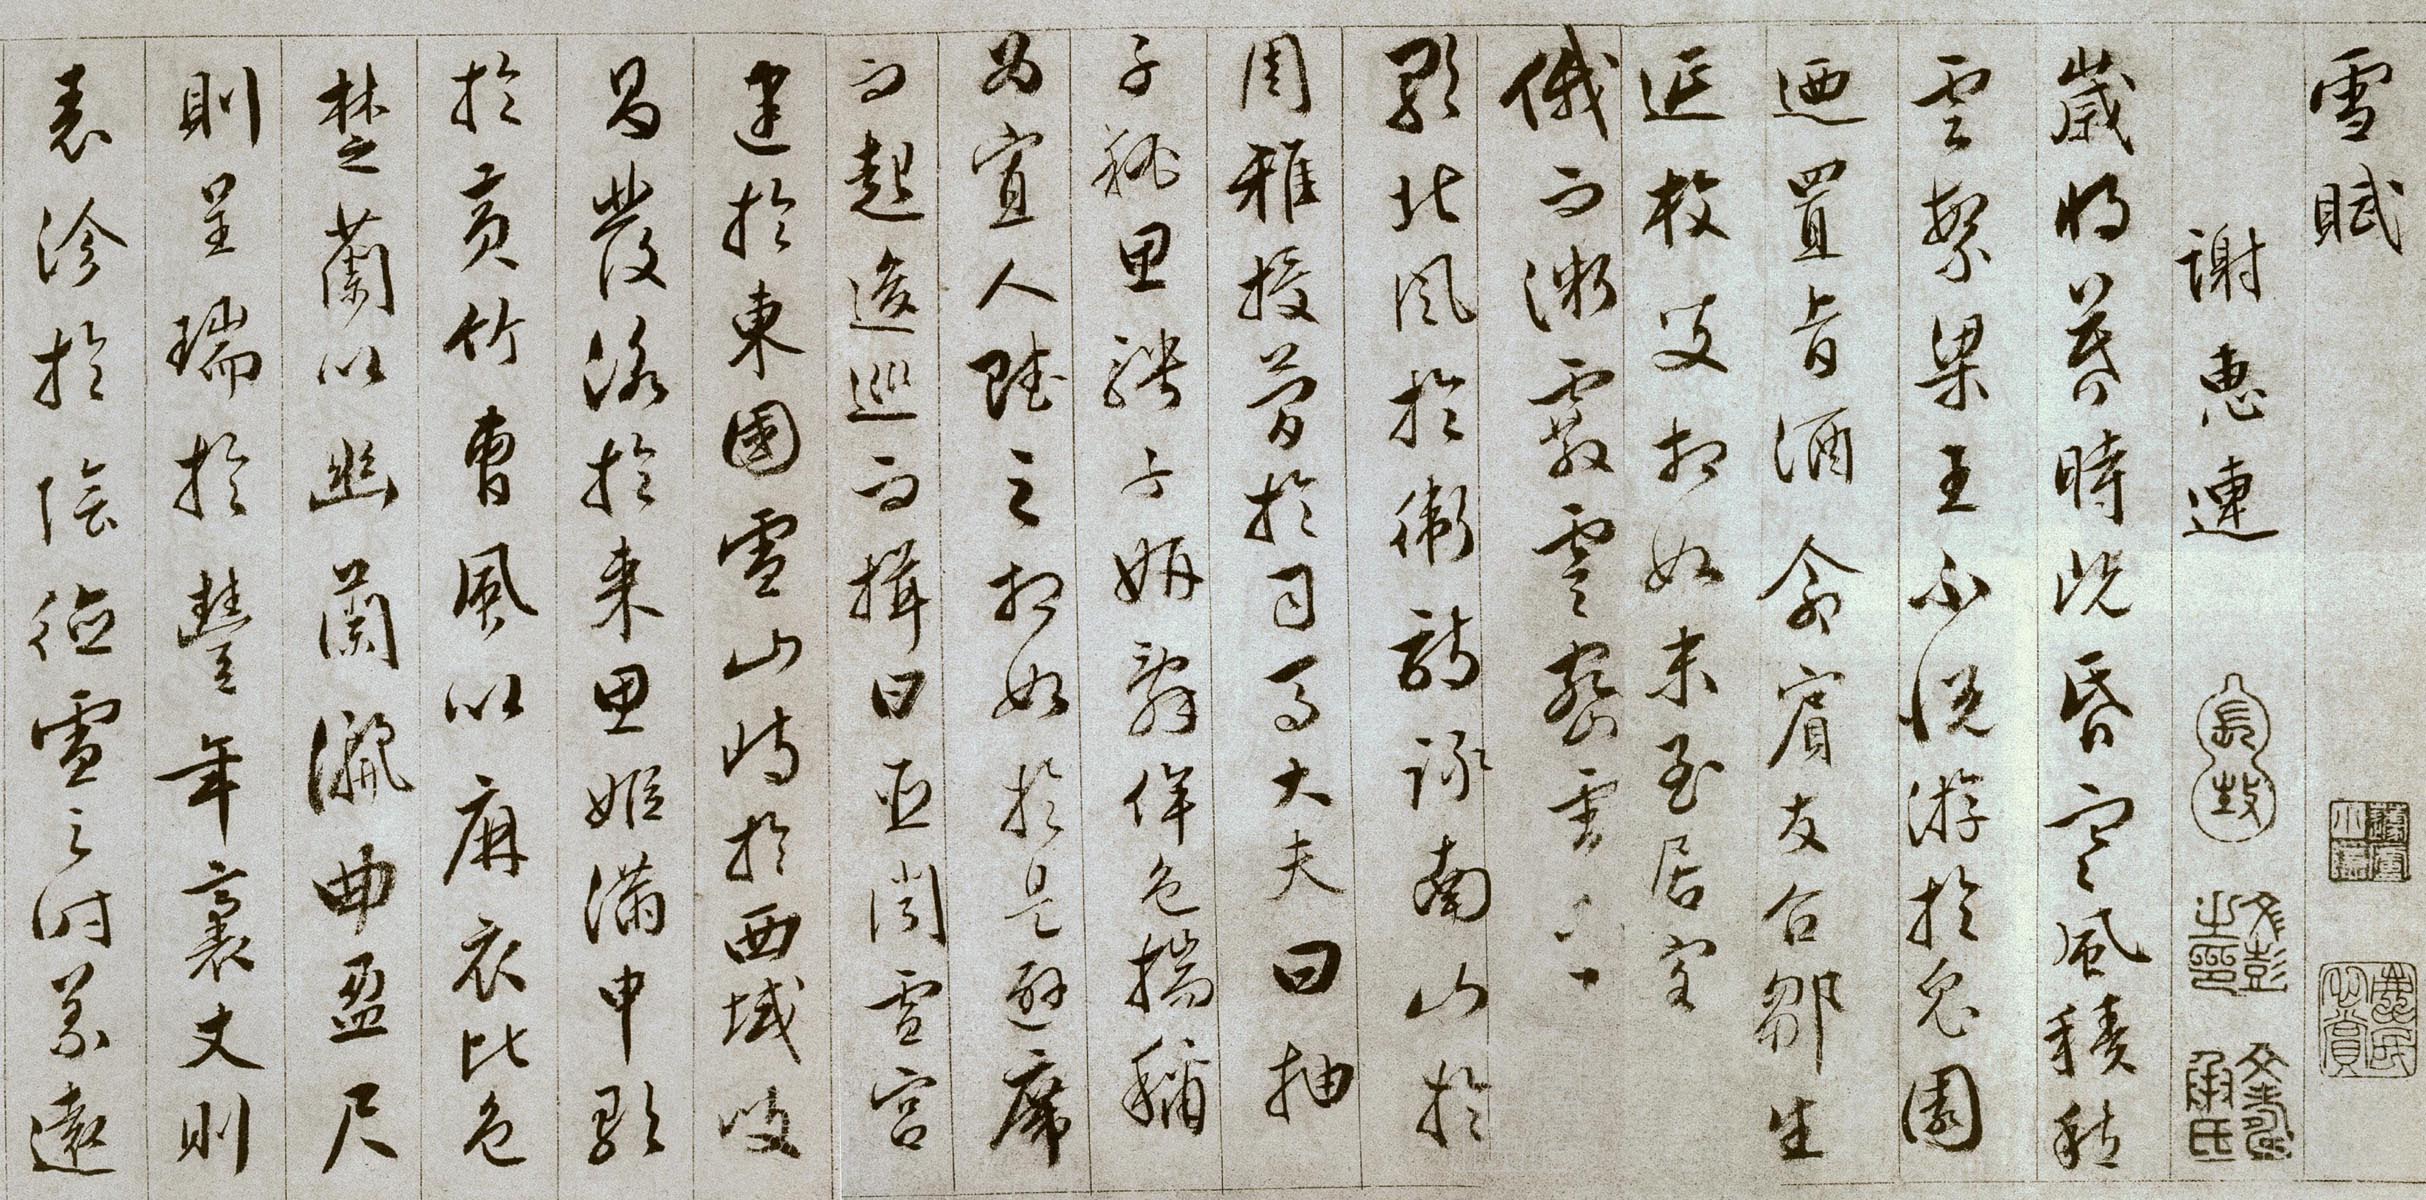 雪賦
謝惠連
歲將暮時既昏寒風積愁
雲繁梁王不悅游於兔園
迺置旨酒命賓友召鄒生
延枚叟相如末至居客
俄而微霰零密雪
歌北風於衛詩詠南山於
周雅授簡於司馬大夫曰抽
子秘思騁子妍辭侔色揣稱
為賓人賦之相如於是避席
而起逡巡而揖曰臣聞雪宮
建於東國雪山峙於西域岐
昌發詠於來思姬滿申歌
於黃竹曹風以麻衣比色
楚蘭以幽蘭儷曲盈尺
則呈瑞於豐年袤丈則
表沴於陰德雪之時義遠
文彭之印
文壽承氏